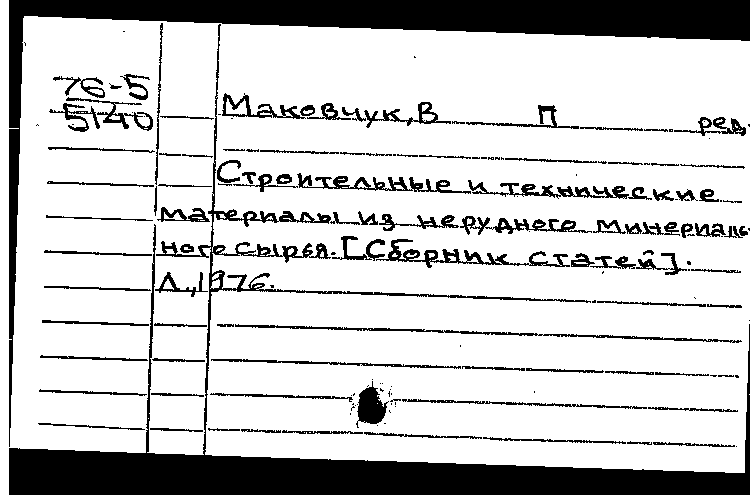 76-5
5140
Маковчук, В П ред.
Строительные и технические
материалы из нерудного минераль-
ного сырья. [Сборник статей].
Л., 1976.